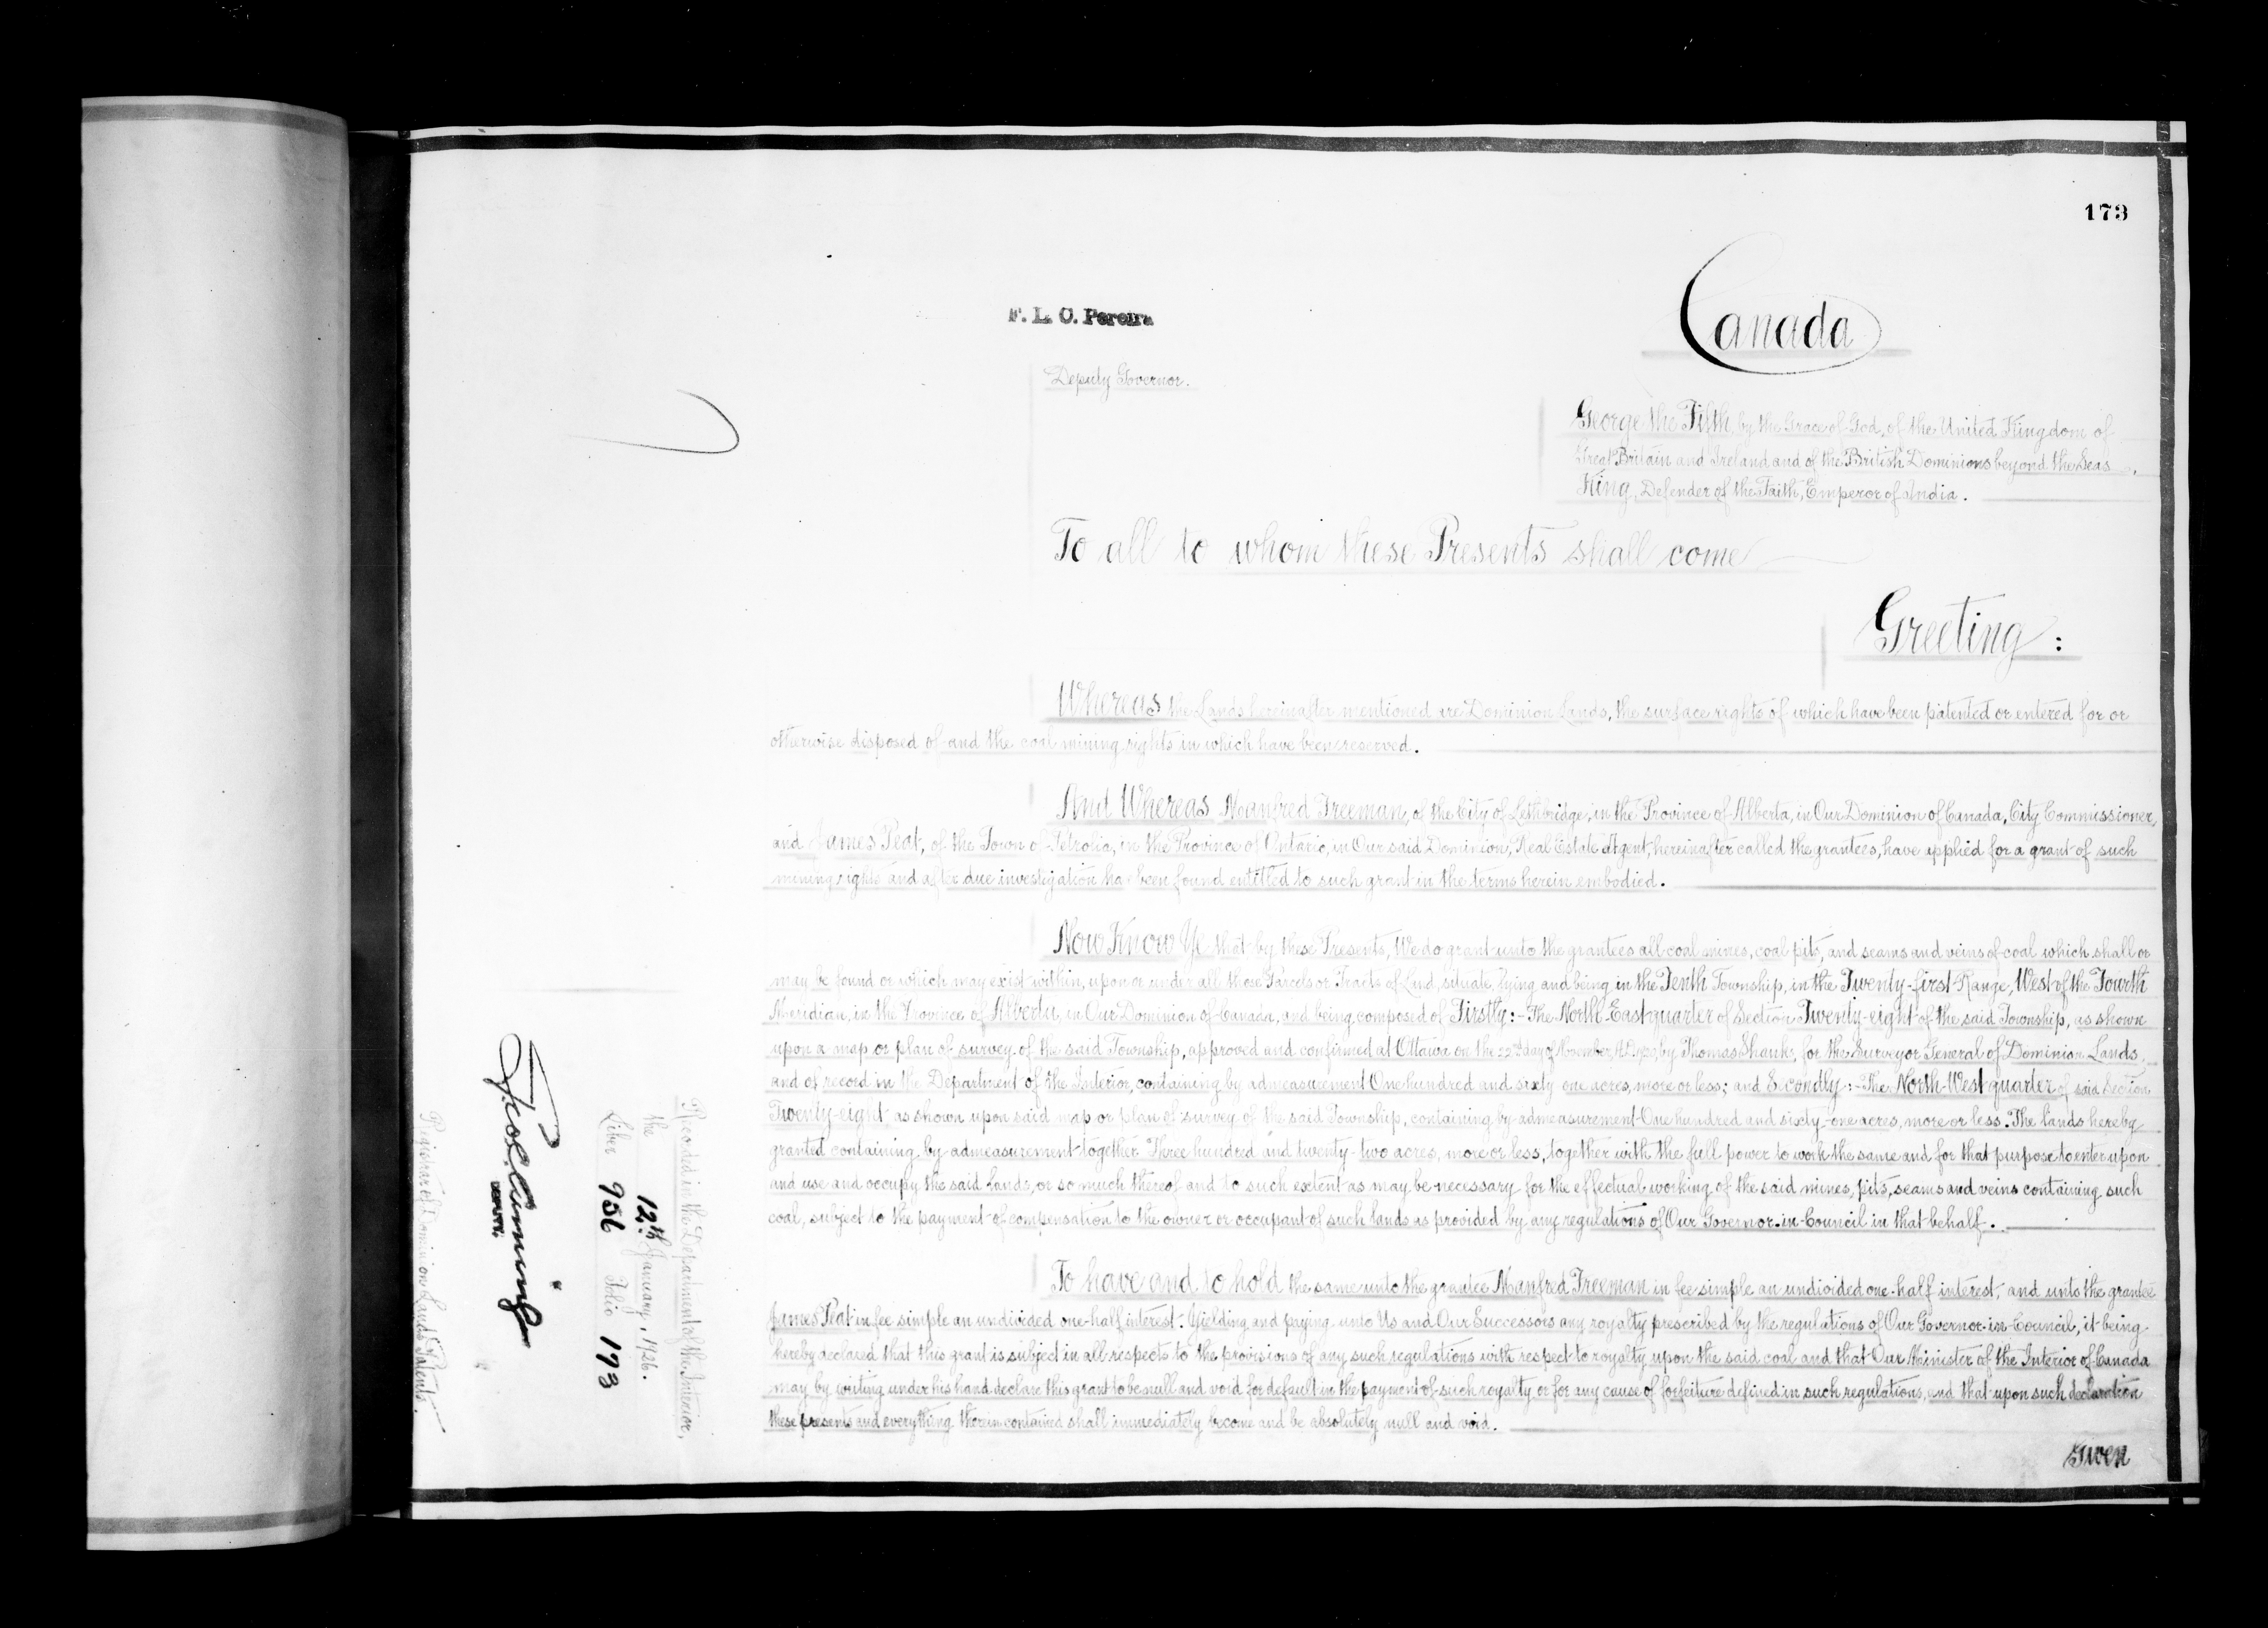 173
F. L. C. Pereira
Deputy Governor.
Canada
George the Fifth, by the Grace of God, of the United Kingdom of
Great Britain and Ireland and of the British Dominions beyond the Seas,
King, Defender of the Faith, Emperor of India.
To all to whom these Presents shall come
Greeting:
Whereas the Lands hereinafter mentioned are Dominion Lands, the surface rights of which have been patented or entered for or
otherwise disposed of and the coal mining rights in which have been reserved.
And Whereas Manfred Freeman, of the City of Lethbridge, in the Province of Alberta, in Our Dominion of Canada, City Commissioner,
and James Peat, of the Town of Petrolia, in the Province of Ontario, in Our said Dominion, Real Estate Agent, hereinafter called the grantees, have applied for a grant of such
mining rights and after due investigation ha been found entitled to such grant in the terms herein embodied.
Now Know Ye that by these Presents, We do grant unto the grantees all coal mines, coal pits, and seams and veins of coal which shall or
may be found or which may exist within, upon or under all those Parcels or Tracts of Land, situate, lying and being in the Tenth Township, in the Twenty-first Range, West of the Fourth
Meridian, in the Province of Alberta, in Our Dominion of Canada, and being composed of Firstly:- The North East quarter of Section Twenty-eight of the said Township, as shown
upon a map or plan of survey of the said Township, approved and confirmed at Ottawa on the 22nd day of November, A.D. 1920, by Thomas Shanks, for the Surveyor General of Dominion Lands,
and of record in the Department of the Interior, containing by admeasurement One hundred and sixty one acres, more or less; and Secondly:- The North-West quarter of said Section
Twenty-eight, as shown upon said map or plan of survey of the said Township, containing by admeasurement One hundred and sixty-one acres, more or less. The lands hereby
granted containing by admeasurement together Three hundred and twenty-two acres, more or less, together with the full power to work the same and for that purpose to enter upon
and use and occupy the said Lands, or so much thereof and to such extent as may be necessary for the effectual working of the said mines, pits, seams and veins containing such
coal, subject to the payment of compensation to the owner or occupant of such lands as provided by any regulations of Our Governor-in-Council in that behalf.
To have and to hold the same unto the grantee Manfred Freeman in fee simple an undivided one-half interest, and unto the grantee
James Peat in fee simple an undivided one-half interest. Yielding and paying unto Us and Our Successors any royalty prescribed by the regulations of Our Governor-in-Council, it being
hereby declared that this grant is subject in all respects to the provisions of any such regulations with respect to royalty upon the said coal and that Our Minister of the Interior of Canada
may by writing under his hand declare this grant to be null and void for default in the payment of such royalty or for any cause of forfeiture defined in such regulations, and that upon such declaration
these presents and everything therein contained shall immediately become and be absolutely null and void.
Given
Recorded in the Department of the Interior,
the 12th January, 1926.
Liber 956 Folio 173
DEPUTY
Registrar of Dominion Lands Patents.